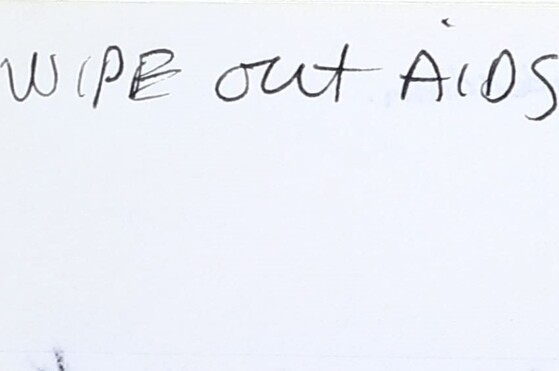 WIPE out AiDS